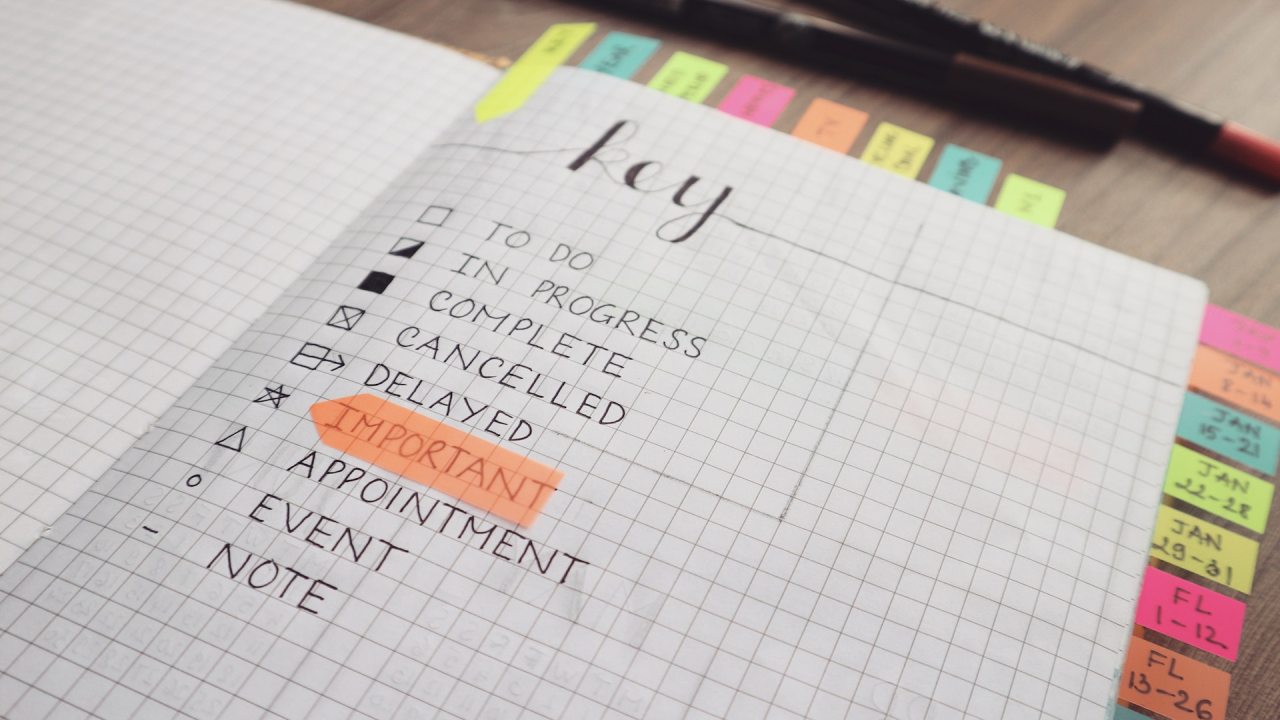 key
TO DO
IN PROGRESS
COMPLETE
CANCELLED
DELAYED
IMPORTANT
APPOINTMENT
EVENT
NOTE
TV
JAN
8-14
JAN
15-21
JAN
22-28
JAN
29-31
FL
1-12
FL
13-26